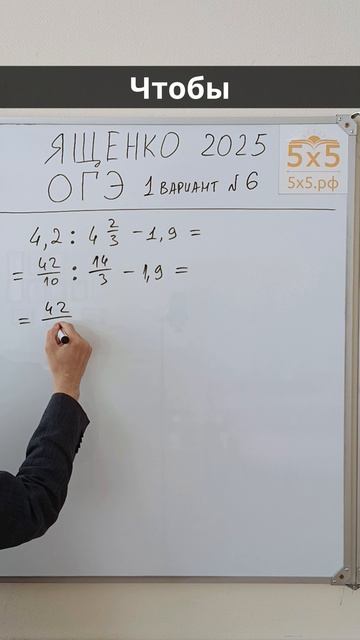 Чтобы
ЯЩЕНКО 2025
ОГЭ 1 ВАРИАНТ №6
5x5
5x5.рф
4,2 : 4 2/3 - 1,9 =
= 42/10 : 14/3 - 1,9 =
= 42